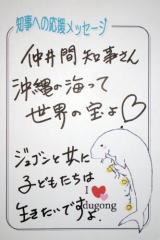 知事への応援メッセージ
仲井間知事さん
沖縄の海って
世界の宝よ♡
ジュゴンと女に
子どもたちは
生きたいですよ。
I ♥
dugong